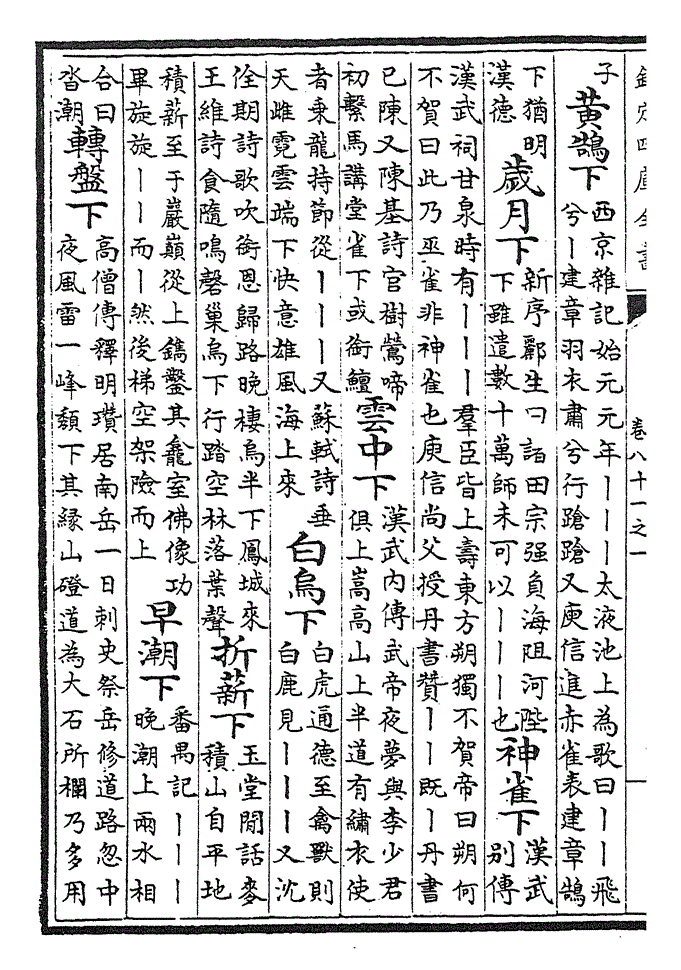 欽定四庫全書
卷八十一之一
子
黃鵠下
西京雜記始元元年丨丨丨太液池上為歌曰丨丨飛
兮丨建章羽衣肅兮行蹌蹌又庾信進赤雀表建章鵠
下猶明
漢德
歲月下
新序酈生曰諸田宗强負海阻河陛
下雖遣數十萬師未可以丨丨丨也
神雀下
漢武
別傳
漢武祠甘泉時有丨丨丨羣臣皆上壽東方朔獨不賀帝曰朔何
不賀曰此乃巫雀非神雀也庾信尚父授丹書贊丨丨既丨丹書
已陳又陳基詩官樹鶯啼
初繫馬講堂雀下或銜鱣
雲中下
漢武內傳武帝夜夢與李少君
俱上嵩高山上半道有繡衣使
者乗龍持節從丨丨丨又蘇軾詩垂
天雌霓雲端下快意雄風海上來
白烏下
白虎通德至禽獸則
白鹿見丨丨丨又沈
佺期詩歌吹銜恩歸路晚棲烏半下鳳城來
王維詩食隨鳴磬巢烏下行踏空林落葉聲
折薪下
玉堂閒話麥
積山自平地
積薪至于巖巔從上鐫鑿其龕室佛像功
畢旋旋丨丨而丨然後梯空架險而上
早潮下
番禺記丨丨丨
晚潮上兩水相
合曰
沓潮
轉盤下
高僧傳釋明瓚居南岳一日刺史祭岳修道路忽中
夜風雷一峰頽下其縁山磴道為大石所欄乃多用